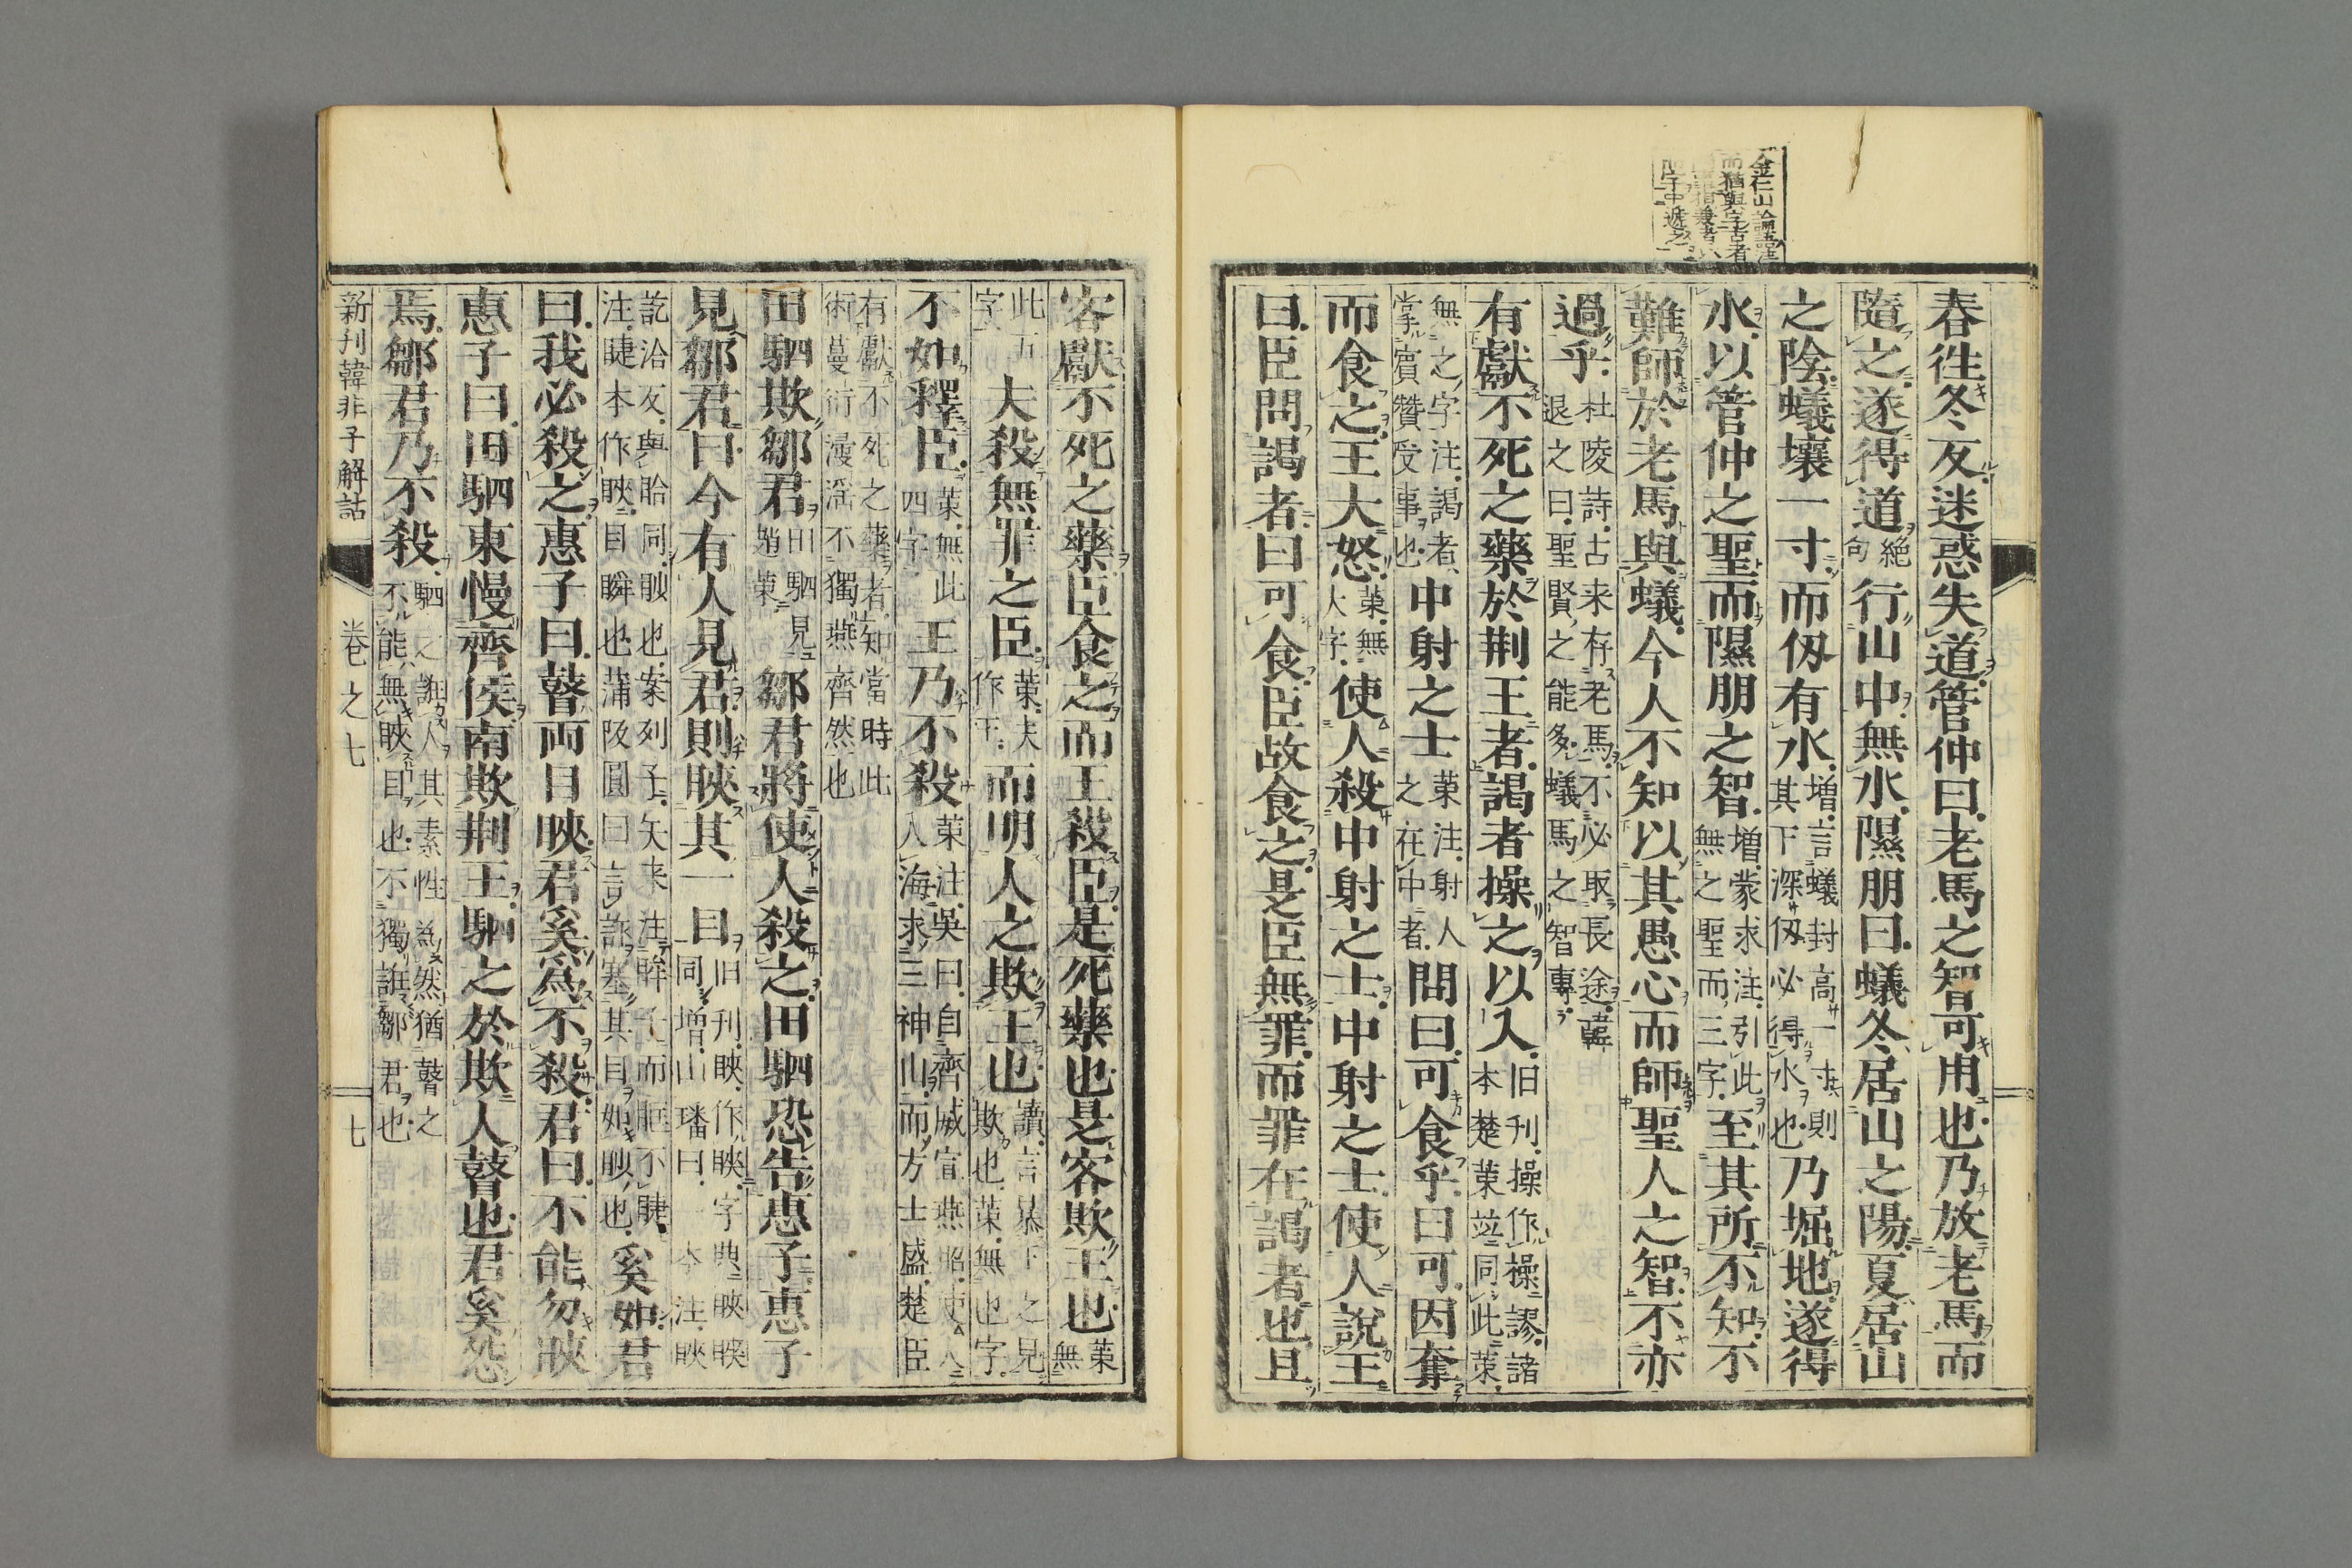 金仁山論語注
而猶與字古者
春往冬反迷惑失道管仲曰老馬之智可用也乃放老馬而
隨之遂得道絶句行山中無水隰朋曰蟻冬居山之陽夏居山
之陰蟻壤一寸而仭有水増言蟻封高一寸則其下深仭必得水也乃堀地遂得
水以管仲之聖而隰朋之智増蒙求注引此無之聖而三字至其所不知不
難師於老馬與蟻今人不知以其愚心而師聖人之智不亦
過乎杜陵詩古来存老馬不必取長途韓退之曰聖賢之能多蟻馬之智專
有獻不死之藥於荆王者謁者操之以入旧刋操作橾謬諸本楚策並同此策
無之字注謁者掌賔贊受事也中射之士策注射人之在中者問曰可食乎曰可因奪
而食之王大怒策無大字使人殺中射之士中射之士使人說王
曰臣問謁者曰可食臣故食之是臣無罪而罪在謁者也且
客獻不死之藥臣食之而王殺臣是死藥也是客欺王也策無
此五字夫殺無罪之臣策夫作王而明人之欺王也讀言暴下之見欺也策無也字
不如釋臣策無此四字王乃不殺策注吳曰自齊威宣燕昭使人入海求三神山而方士盛楚臣
有獻不死之藥者知當時此術蔓衍漫滛不獨燕齊然也
田駟欺鄒君田駟見趙策鄒君將使人殺之田駟恐告惠子惠子
見鄒君曰今有人見君則䀹其一目旧刋䀹作䀹字典䀹睽同増山璠曰一本注䀹
訖洽反與眙同䀹也案列子矢来注眸子而眶不睫注睫本作䀹目瞬也蒲阪圓曰言訟塞其目如䀹也奚如君
曰我必殺之惠子曰瞽兩目䀹君奚爲不殺君曰不能勿䀹
惠子曰田駟東慢齊侯南欺荆王駟之於欺人瞽也君奚怨
焉鄒君乃不殺駟之誑人其素性為然猶瞽之不能無䀹目也不獨誑鄒君也
新刋韓非子解詁 巻之七 七